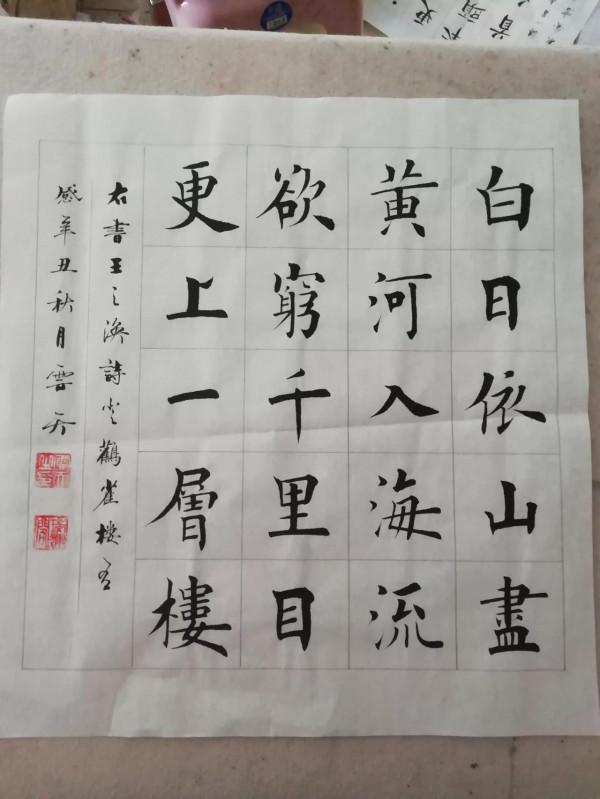 白日依山盡
黄河入海流
欲窮千里目
更上一層樓
右書王之渙詩登鸛雀樓有
感辛丑秋月雲